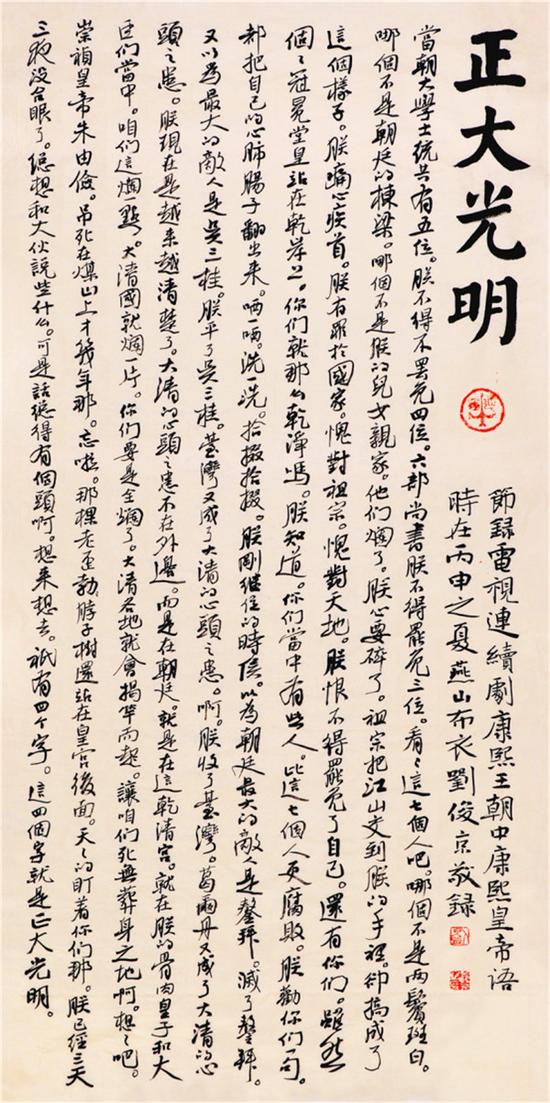 正大光明
節録電視連續劇康熙王朝中康熙皇帝语
時在丙申之夏燕山布衣劉俊京敬録
當朝大學士统共有五位。朕不得不罢免四位。六部尚書朕不得罷免三位。看〻這七個人吧。哪個不是两鬢斑白。
哪個不是朝廷的棟梁。哪個不是朕的兒女親家。他們爛了。朕心要碎了。祖宗把江山交到朕的手裡。卻搞成了
這個樣子。朕痛心疾首。朕有罪於國家。愧對祖宗。愧對天地。朕恨不得罷免了自己。還有你們。雖然
個〻冠冕堂皇站在乾岸上。你們就那么乾淨嗎。朕知道。你們當中有些人。比這七個人更腐敗。朕勸你們一句。
都把自己的心肺腸子翻出来。晒一晒。洗一洗。拾掇拾掇。朕剛继位的時候。以為朝廷最大的敵人是鰲拜。滅了鰲拜。
又以為最大的敵人是吳三桂。朕平了吳三桂。臺灣又成了大清的心頭之患。啊。朕收了臺灣。葛爾丹又成了大清的心
頭之患。朕現在是越来越清楚了。大清的心頭之患不在外邊。而是在朝廷。就是在這乾清宫。就在朕的骨肉皇子和大
臣們當中。咱們這爛一點。大清國就爛一片。你們要是全爛了。大清各地就會揭竿而起。讓咱們死無葬身之地啊。想〻吧。
崇禎皇帝朱由儉。吊死在煤山上才幾年那。忘啦。那棵老歪勃脖子樹還站在皇宫後面。天〻的盯着你們那。朕已經三天
三夜没合眼了。總想和大伙説些什么。可是話總得有個頭啊。想来想去。祇有四个字。這四個字就是正大光明。